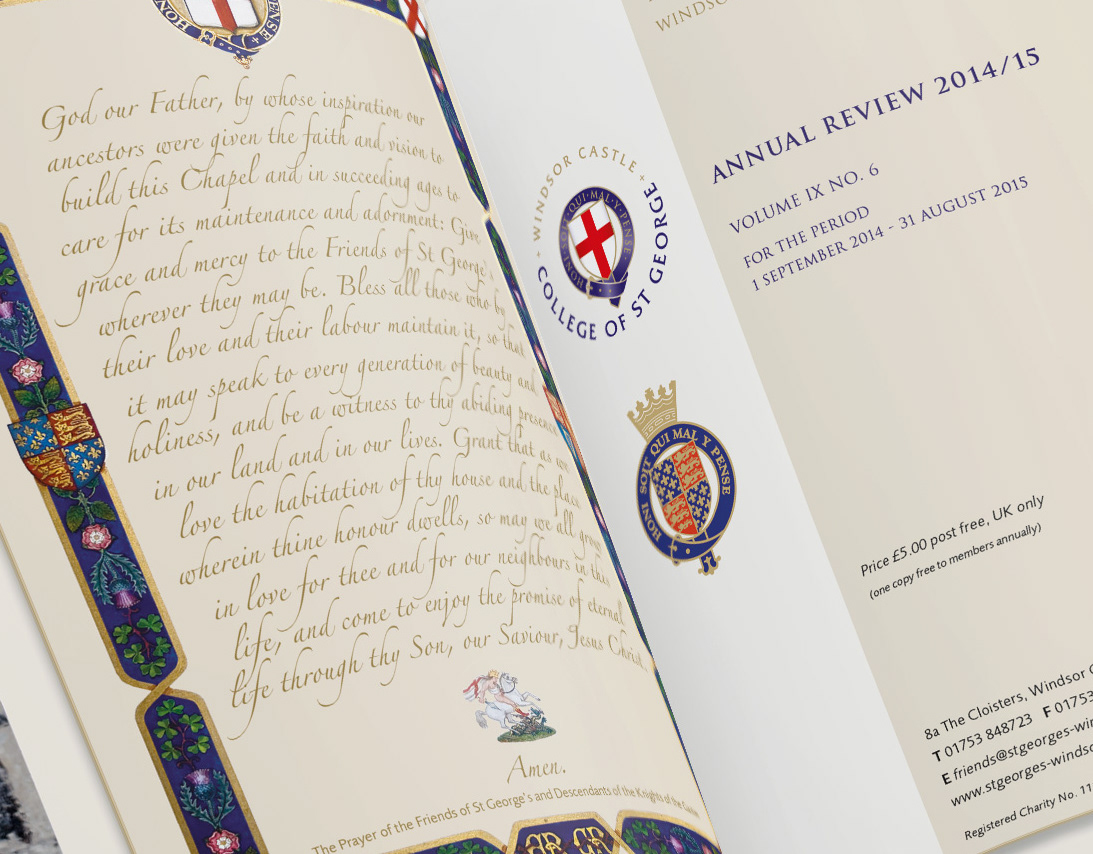 HONI
PENSE
God our Father, by whose inspiration our
ancestors were given the faith and vision to
build this Chapel and in succeeding ages to
care for its maintenance and adornment: Give
grace and mercy to the Friends of St George's
wherever they may be. Bless all those who by
their love and their labour maintain it, so that
it may speak to every generation of beauty and
holiness, and be a witness to thy abiding presence
in our land and in our lives. Grant that as we
love the habitation of thy house and the place
wherein thine honour dwells, so may we all grow
in love for thee and for our neighbours in this
life, and come to enjoy the promise of eternal
life through thy Son, our Saviour, Jesus Christ.
Amen.
The Prayer of the Friends of St George's and Descendants of the Knights of the Garter
WINDSOR CASTLE
HONI SOIT QUI MAL Y PENSE
COLLEGE OF ST GEORGE
HONI SOIT QUI MAL Y PENSE
WINDSO
ANNUAL REVIEW 2014/15
VOLUME IX NO. 6
FOR THE PERIOD
1 SEPTEMBER 2014 - 31 AUGUST 2015
Price £5.00 post free, UK only
(one copy free to members annually)
8a The Cloisters, Windsor C
T 01753 848723 F 01753
E friends@stgeorges-win
www.stgeorges-windso
Registered Charity No. 11